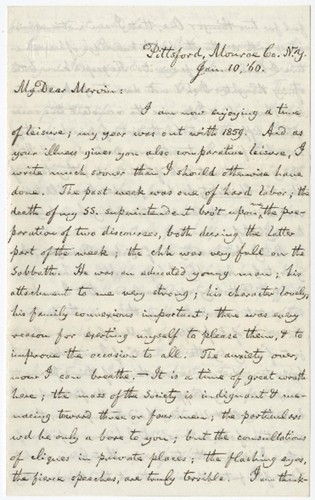 Pittsford, Monroe Co. N.Y.
Jan. 10, '60.
My Dear Marvin:
I am now enjoying a time
of leisure; my year was out with 1859. And as
your illness gives you also comparative leisure, I
write much sooner than I should otherwise have
done. The past week was one of hard labor; the
death of my SS. superintendent bro't upon me the pre-
paration of two discourses, both during the latter
part of the week; the chh was very full on the
Sabbath. He was an educated young man; his
attachment to me very strong; his character lovely,
his family connexions important; there was every
reason for exerting myself to please them, & to
improve the occasion to all. The anxiety over,
now I can breathe. — It is a time of great wrath
here; the mass of the Society is indignant & me-
nacing toward three or four men; the particulars
wd be only a bore to you; but the consultations
of cliques in private places; the flashing eyes,
the fierce speeches, are truly terrible. I am think-